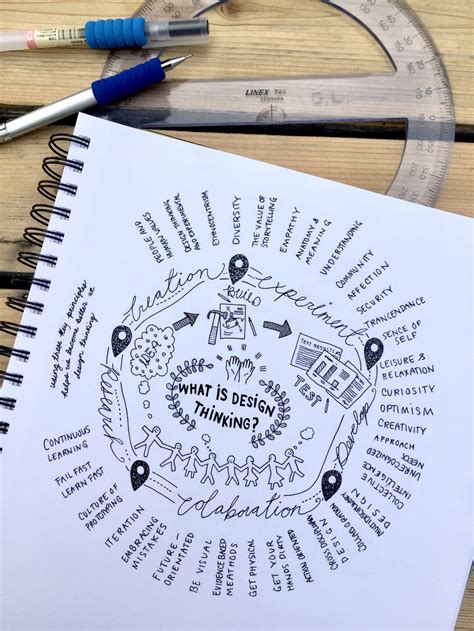 LINEX 920
DENMARK
G.L.
using these key principles
helps us become better at
design thinking!
PEOPLE AND
HUMAN VALUES
DESIGN THINKING
AND EXPERIMENTAL
ETHNOCENTRISM
DIVERSITY
THE VALUE OF
STORYTELLING
EMPATHY
ANATOMY &
MEANING
UNDERSTANDING
COMMUNITY
AFFECTION
SECURITY
TRANCENDANCE
SENCE OF
SELF
LEISURE &
RELAXATION
CURIOSITY
OPTIMISM
CREATIVITY
APPROACH
UNRECOGNIZED
NEEDS
COLLECTIVE
INTELLIGENCE
MULTIDICIPLINARY
DESIGN
COLLABORATION
CROSS DISCIPLINARY
DESIGN
ACTION ORIENTED
GET YOUR
HANDS DIRTY
GET PHYSICAL
EVIDENCE BASED
MEATHODS
BE VISUAL
FUTURE-
ORIENTATED
EMBRACING
MISTAKES
ITERATION
CULTURE OF
PROTOTYPING
FAIL FAST
LEARN FAST
CONTINUOUS
LEARNING
Creation
experiment
Develop
Colaboration
Research
IDEA
BUILD
TEST RESULTS
TEST
WHAT IS DESIGN
THINKING?